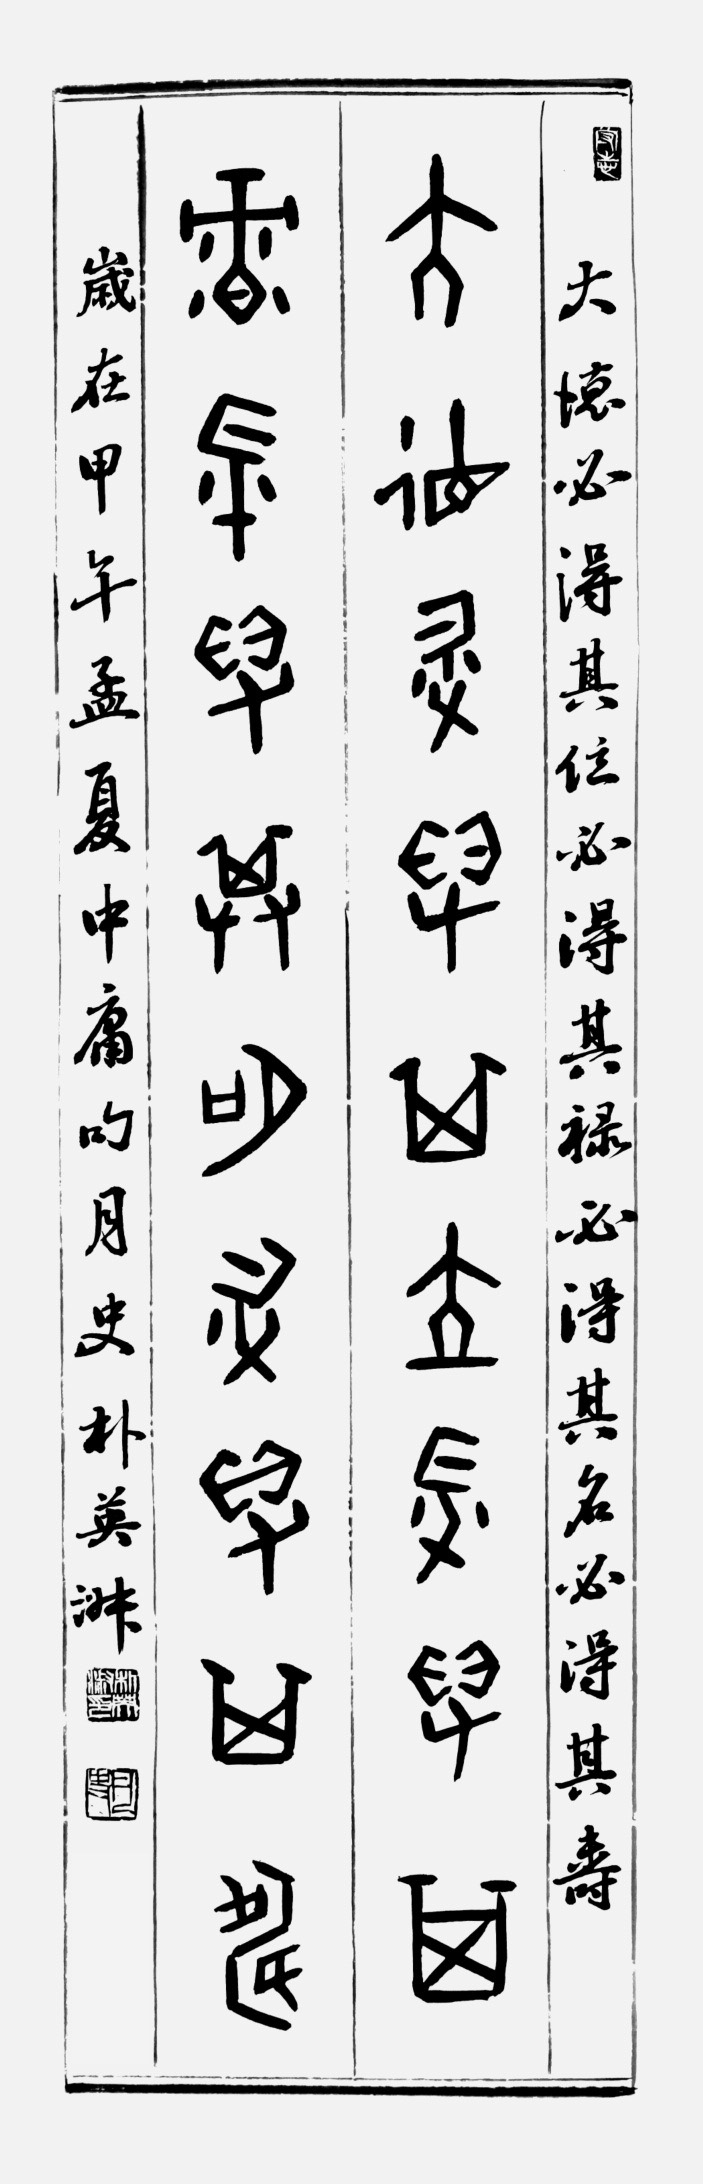 大德必得其位必得其禄必得其名必得其壽
大德必得其立必得其
禄必得其名必得其壽
歲在甲午孟夏中庸句月史朴英淑
朴英淑印
月史